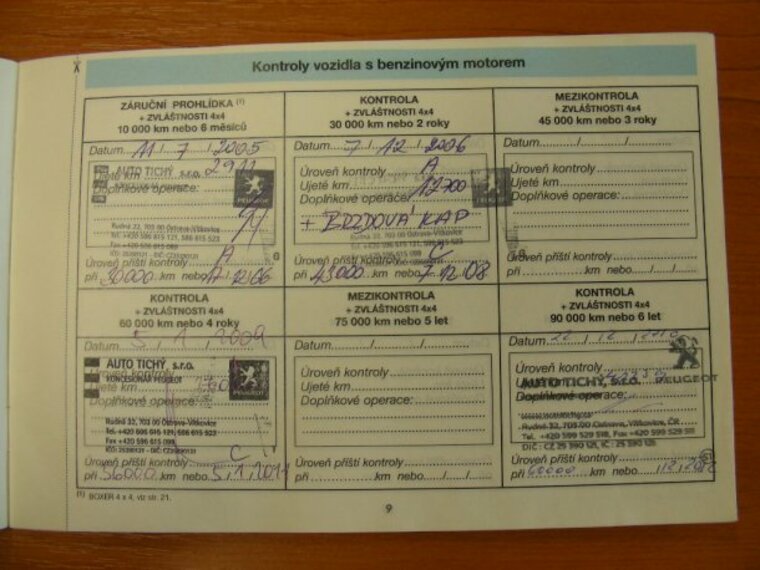 Kontroly vozidla s benzinovým motorem
ZÁRUČNÍ PROHLÍDKA (1)
+ ZVLÁŠTNOSTI 4x4
10 000 km nebo 6 měsíců
Datum 11 / 7 / 2005
AUTO TICHÝ s.r.o.
Ujeté km 2911
Doplňkové operace:
PEUGEOT
Rudná 32, 703 00 Ostrava-Vítkovice
Tel. +420 596 615 121, 596 615 523
Fax +420 596 615 099
Úroveň příští kontroly A
při 30000 km nebo
KONTROLA
+ ZVLÁŠTNOSTI 4x4
30 000 km nebo 2 roky
Datum 7 / 12 / 2006
Úroveň kontroly A
Ujeté km 17700
Doplňkové operace:
+ BRZDOVÁ KAP
PEUGEOT
Rudná 32, 703 00 Ostrava-Vítkovice
Tel. +420 596 615 121, 596 615 523
Úroveň příští kontroly C
při 43000 km nebo 7.12.08
MEZIKONTROLA
+ ZVLÁŠTNOSTI 4x4
45 000 km nebo 3 roky
Datum / /
Úroveň kontroly
Ujeté km
Doplňkové operace:
Úroveň příští kontroly
při km nebo / /
KONTROLA
+ ZVLÁŠTNOSTI 4x4
60 000 km nebo 4 roky
Datum 5 / 1 / 2009
AUTO TICHÝ s.r.o.
Úroveň kontroly
KONCESIONÁŘ PEUGEOT
Ujeté km
Doplňkové operace:
PEUGEOT
Rudná 32, 703 00 Ostrava-Vítkovice
Tel. +420 596 615 121, 596 615 523
Fax +420 596 615 099
Úroveň příští kontroly C
při 56000 km nebo 5.1.2011
MEZIKONTROLA
+ ZVLÁŠTNOSTI 4x4
75 000 km nebo 5 let
Datum / /
Úroveň kontroly
Ujeté km
Doplňkové operace:
Úroveň příští kontroly
při km nebo / /
KONTROLA
+ ZVLÁŠTNOSTI 4x4
90 000 km nebo 6 let
Datum 22 / 12 / 2010
Úroveň kontroly
AUTO TICHÝ, s.r.o. PEUGEOT
Doplňkové operace:
Rudná 32, 703 00 Ostrava, Vítkovice, ČR
Tel. +420 599 529 518, Fax +420 599 529 511
DIČ: CZ 25 390 121, IČ: 25 390 121
Úroveň příští kontroly
při 60000 km nebo
(1) BOXER 4 x 4, viz str. 21.
9